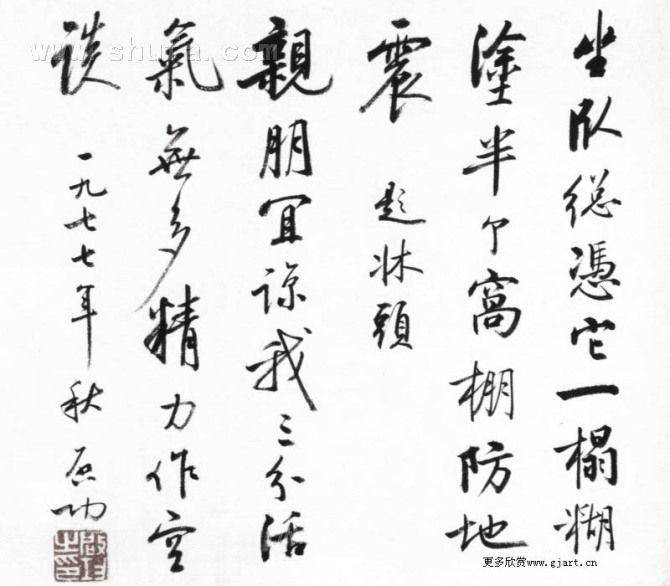 坐臥總憑它一榻糊
塗半个窩棚防地
震 題牀頭
親朋宜諒我三分活
氣無多精力作空
談 一九七七年秋 启功
啟功之印
www.shufa.com
更多欣赏www.gjart.cn